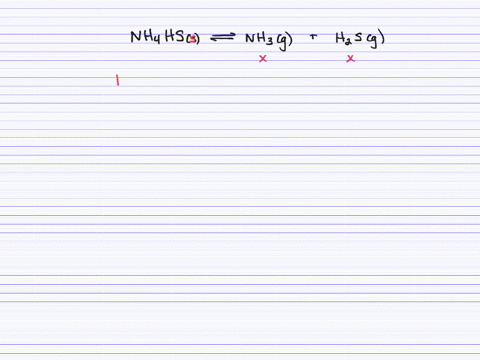 NH4HS(s) ⇌ NH3(g) + H2S(g)
x x